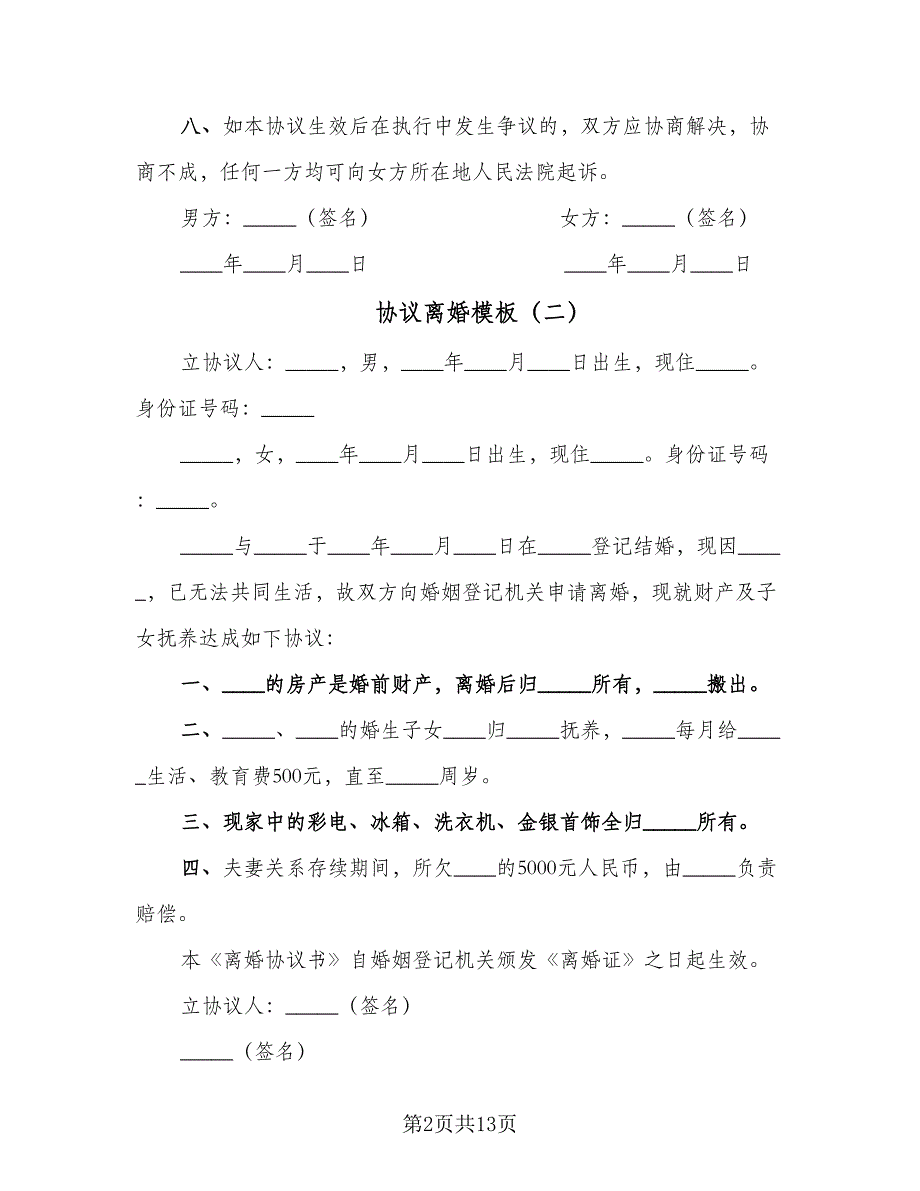 八、如本协议生效后在执行中发生争议的，双方应协商解决，协
商不成，任何一方均可向女方所在地人民法院起诉。
男方：_____（签名） 女方：_____（签名）
____年____月____日 ____年____月____日
协议离婚模板（二）
立协议人：_____，男，____年____月____日出生，现住_____。
身份证号码：_____
_____，女，____年____月____日出生，现住_____。身份证号码
：_____。
_____与_____于____年____月____日在_____登记结婚，现因____
_，已无法共同生活，故双方向婚姻登记机关申请离婚，现就财产及子
女抚养达成如下协议：
一、____的房产是婚前财产，离婚后归_____所有，_____搬出。
二、_____、____的婚生子女____归_____抚养，_____每月给____
_生活、教育费500元，直至_____周岁。
三、现家中的彩电、冰箱、洗衣机、金银首饰全归_____所有。
四、夫妻关系存续期间，所欠____的5000元人民币，由_____负责
赔偿。
本《离婚协议书》自婚姻登记机关颁发《离婚证》之日起生效。
立协议人：_____（签名）
_____（签名）
第2页共13页